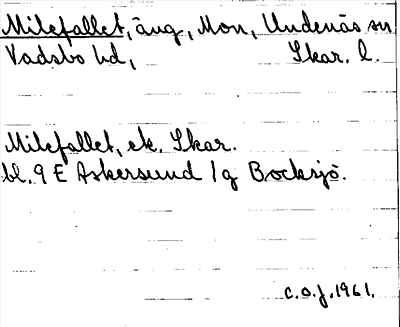 Milefallet, äng, Mon, Undenäs sn
Vadsbo hd, Skar. l.
Milefallet, ek. Skar.
bl. 9 E Askersund 1g Bocksjö.
c.o.f. 1961.